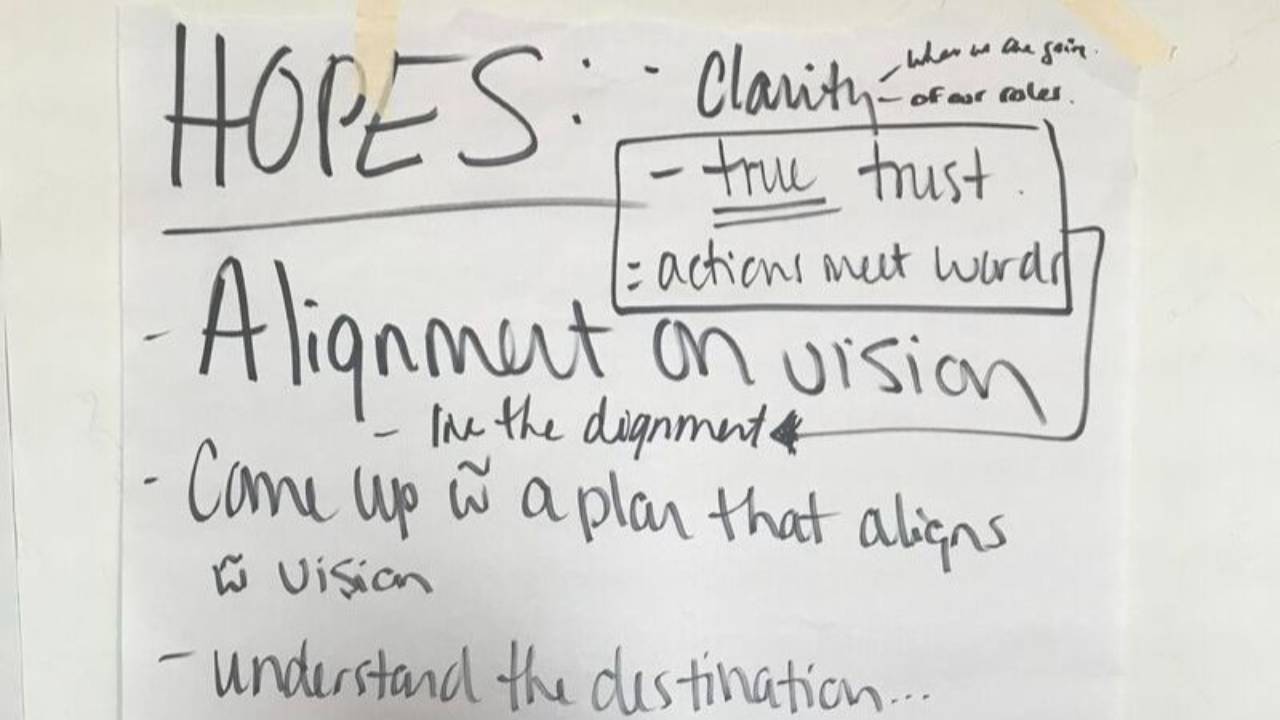 HOPES: - Clarity
- when we are goin.
- of our roles.
- true trust.
= actions meet words
- Alignment on vision
- live the alignment
- Come up w̃ a plan that aligns
w̃ vision
- understand the destination...